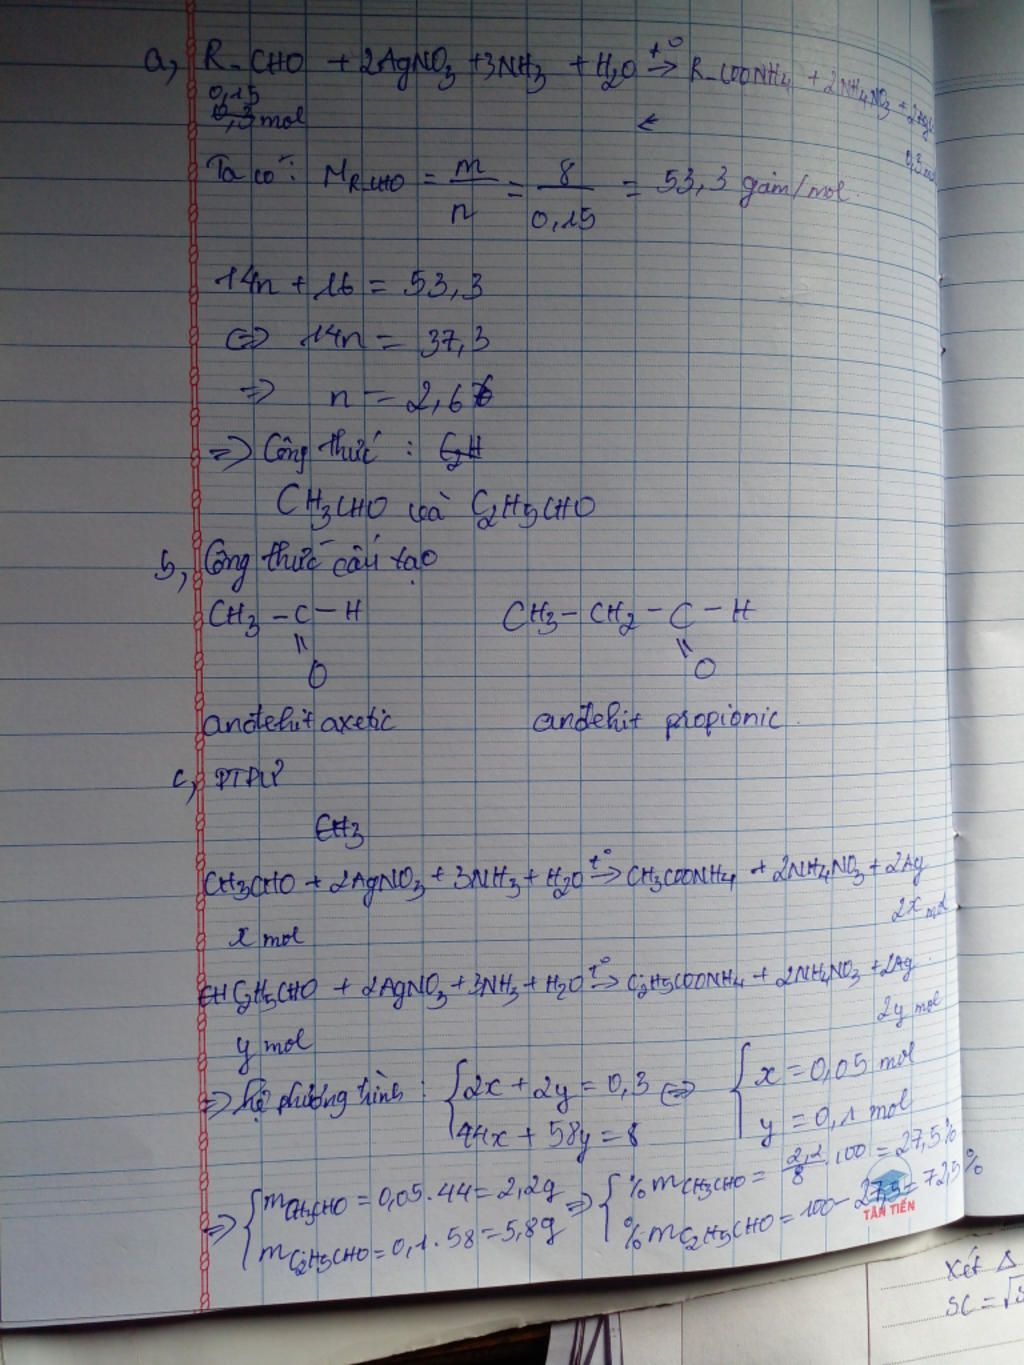 a, R-CHO + 2AgNO3 + 3NH3 + H2O t°→ R-COONH4 + 2NH4NO3 + 2Ag
0,15
0,3 mol ← 0,3 mol
Ta có: M R-CHO = m/n = 8/0,15 = 53,3 gam/mol.
14n + 16 = 53,3
⇔ 14n = 37,3
⇒ n = 2,66
⇒ Công thức : C2H
CH3CHO và C2H5CHO
b, Công thức cấu tạo
CH3 - C - H CH3 - CH2 - C - H
O O
anđehit axetic anđehit propionic.
c, PTPƯ
CH3
CH3CHO + 2AgNO3 + 3NH3 + H2O t°→ CH3COONH4 + 2NH4NO3 + 2Ag
x mol 2x mol
CH C2H5CHO + 2AgNO3 + 3NH3 + H2O t°→ C2H5COONH4 + 2NH4NO3 + 2Ag.
y mol 2y mol
⇒ hệ phương trình : { 2x + 2y = 0,3 ⇔ { x = 0,05 mol
44x + 58y = 8 y = 0,1 mol
⇒ { mCH3CHO = 0,05.44 = 2,2g ⇒ { %mCH3CHO = 2,2/8 .100 = 27,5%
mC2H5CHO = 0,1.58 = 5,8g %mC2H5CHO = 100 - 27,5 = 72,5%
TÂN TIẾN
Xét Δ
SC = √